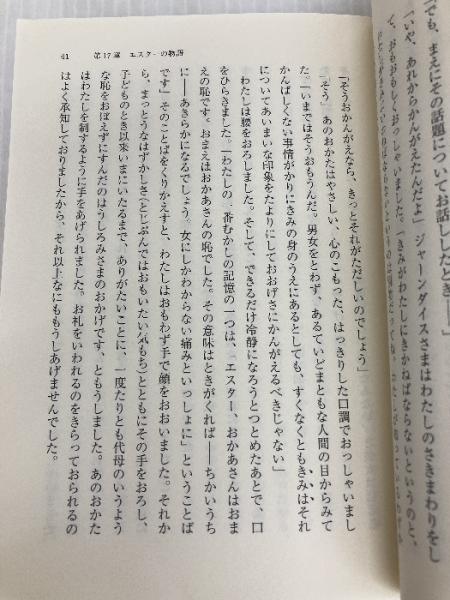 でも、まえにその話題についてお話ししたとき――」
「いや、あれからかんがえたんだよ」ジャーンダイスさまはわたしのさきまわりをし
て、おもおもしくおっしゃいました。「きみがわたしにきかねばならないというのは
41 第17章 エスターの物語
「そうおかんがえなら、きっとそれがただしいのでしょう」
「そう」あのおかたはやさしい、心のこもった、はっきりした口調でおっしゃいまし
た。「いまではそうおもうんだ。男女をとわず、あるていどまともな人間の目からみて
かんばしくない事情がかりにきみの身のうえにあるとしても、すくなくともきみはそれ
についてあいまいな印象をたよりにしておおげさにかんがえるべきじゃない」
わたしは腰をおろしました。そして、できるだけ冷静になろうとつとめたあとで、口
をひらきました。「わたしの一番むかしの記憶の一つは、『エスター、おかあさんはおま
えの恥です。おまえはおかあさんの恥でした。その意味はときがくれば――ちかいうち
に――あきらかになるでしょう。女にしかわからない痛みといっしょに』ということば
です」そのことばをくりかえすと、わたしはおもわず手で顔をおおいました。それか
ら、まっとうなはずかしさ(とじぶんではおもいたい気もち)とともにその手をおろし、
子どものとき以来いまにいたるまで、ありがたいことに、一度たりとも代母のいうよう
な恥をおぼえずにすんだのはうしろみさまのおかげです、ともうしました。あのおかた
はわたしを制するように手をあげられました。お礼をいわれるのをきらっておられるの
はよく承知しておりましたから、それ以上なにももうしあげませんでした。